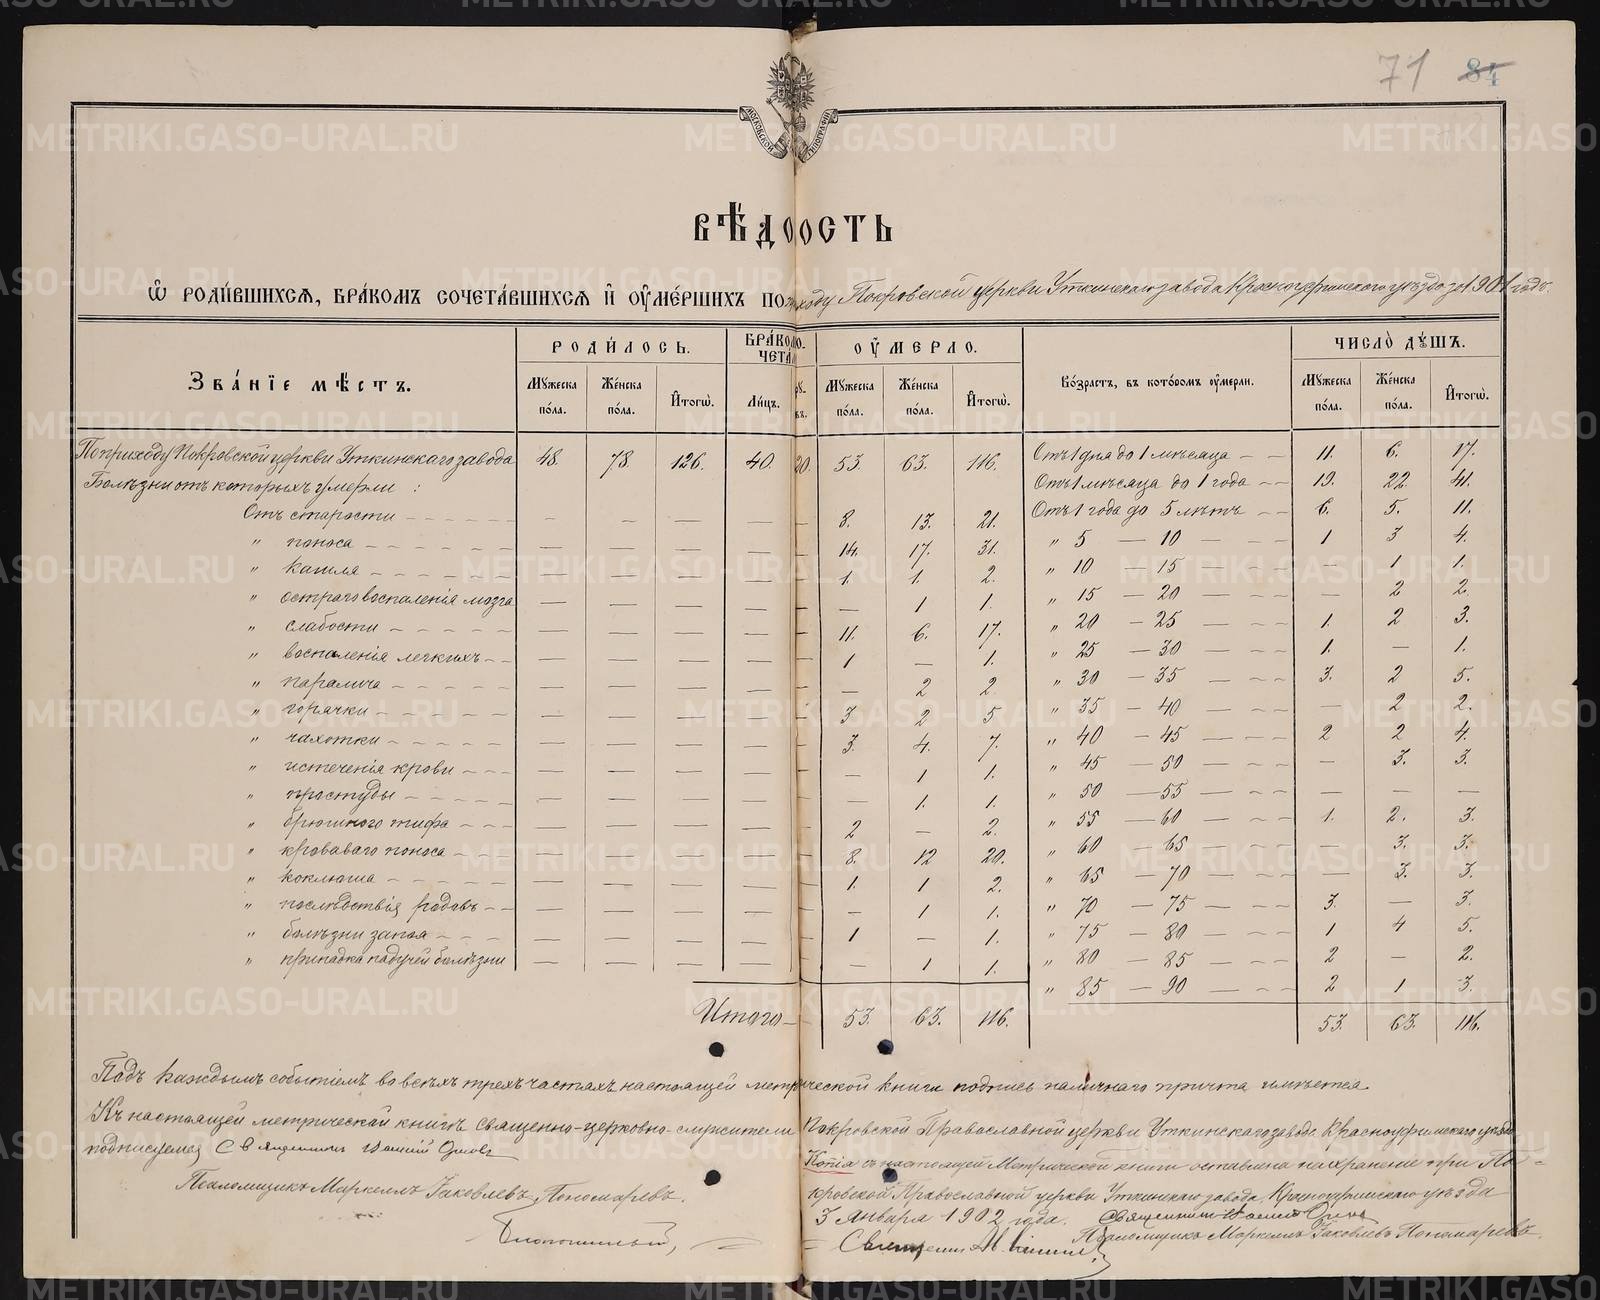 71 84
МОСКОВСКОЙ ТИПОГРАФІИ
ВѢДОСТЬ
Ѡ РОДИ́ВШИХСѦ, БРА́КОМЪ СОЧЕТА́ВШИХСѦ И҆ ОУ҆МЕ́РШИХЪ по приходу Покровской церкви Уткинскаго завода Красноуфимскаго уѣзда за 1901 годъ.
Зва́нїе мѣ́стъ. РОДИ́ЛОСЬ. БРА́КОМЪ СОЧЕТА́ЛОСЬ. ОУ҆́МЕРЛО. Во́зрастъ, въ кото́ромъ оу҆мерли. ЧИСЛО̀ ДУ́ШЪ.
Мꙋжеска по́ла. Же́нска по́ла. И҆тогѡ̀. Ли́цъ. Мꙋжеска по́ла. Же́нска по́ла. И҆тогѡ̀. Мꙋжеска по́ла. Же́нска по́ла. И҆тогѡ̀.
По приходу Покровской церкви Уткинскаго завода 48. 78. 126. 40. 20. 53. 63. 116. Отъ 1 дня до 1 мѣсяца — — 11. 6. 17.
Болѣзни отъ которыхъ умерли : Отъ 1 мѣсяца до 1 года — — 19. 22. 41.
Отъ старости — — — — — 8. 13. 21. Отъ 1 года до 5 лѣтъ — — 6. 5. 11.
" поноса — — — — — 14. 17. 31. " 5 — 10 — — — 1 3 4.
" кашля — — — — — 1. 1. 2. " 10 — 15 — — — — 1 1.
" остраго воспаленія мозга — — — — — — 1 1. " 15 — 20 — — — — 2 2.
" слабости — — — — — 11. 6. 17. " 20 — 25 — — — 1. 2 3.
" воспаленія легкихъ — — — — — 1 — 1. " 25 — 30 — — — 1. — 1.
" паралича — — — — — — 2 2. " 30 — 35 — — — 3. 2 5.
" горячки — — — — — 3 2 5 " 35 — 40 — — — — 2 2.
" чахотки — — — — — 3. 4. 7. " 40 — 45 — — — 2 2 4.
" истеченія крови — — — — — — 1 1. " 45 — 50 — — — — 3. 3.
" простуды — — — — — — 1. 1. " 50 — 55 — — — — — —
" брюшного тифа — — — — — 2 — 2. " 55 — 60 — — — 1. 2. 3.
" кроваваго поноса — — — — — 8. 12 20. " 60 — 65 — — — — 3. 3.
" коклюша — — — — — 1. 1 2. " 65 — 70 — — — — 3. 3.
" послѣдствія родовъ — — — — — — 1 1. " 70 — 75 — — — 3. — 3.
" болѣзни запоя — — — — — 1 — 1. " 75 — 80 — — — 1 4 5.
" припадка падучей болѣзни — — — — — — 1 1. " 80 — 85 — — — 2 — 2.
" 85 — 90 — — — 2 1 3.
Итого — 53. 63. 116. 53. 63. 116.
Подъ каждымъ событіемъ во всѣхъ трехъ частяхъ настоящей метрической книги подпись наличнаго причта имѣется.
Къ настоящей метрической книгѣ священно-церковно-служители Покровской Православной церкви Уткинскаго завода, Красноуфимскаго уѣзда
подписуемся Священникъ
Псаломщикъ Маркеллъ Яковлевъ Пономаревъ.
Копія съ настоящей Метрической книги оставлена на храненіе при По-
кровской Православной церкви Уткинскаго завода, Красноуфимскаго уѣзда
3 Января 1902 года. Священникъ
Псаломщикъ Маркеллъ Яковлевъ Пономаревъ.
METRIKI.GASO-URAL.RU